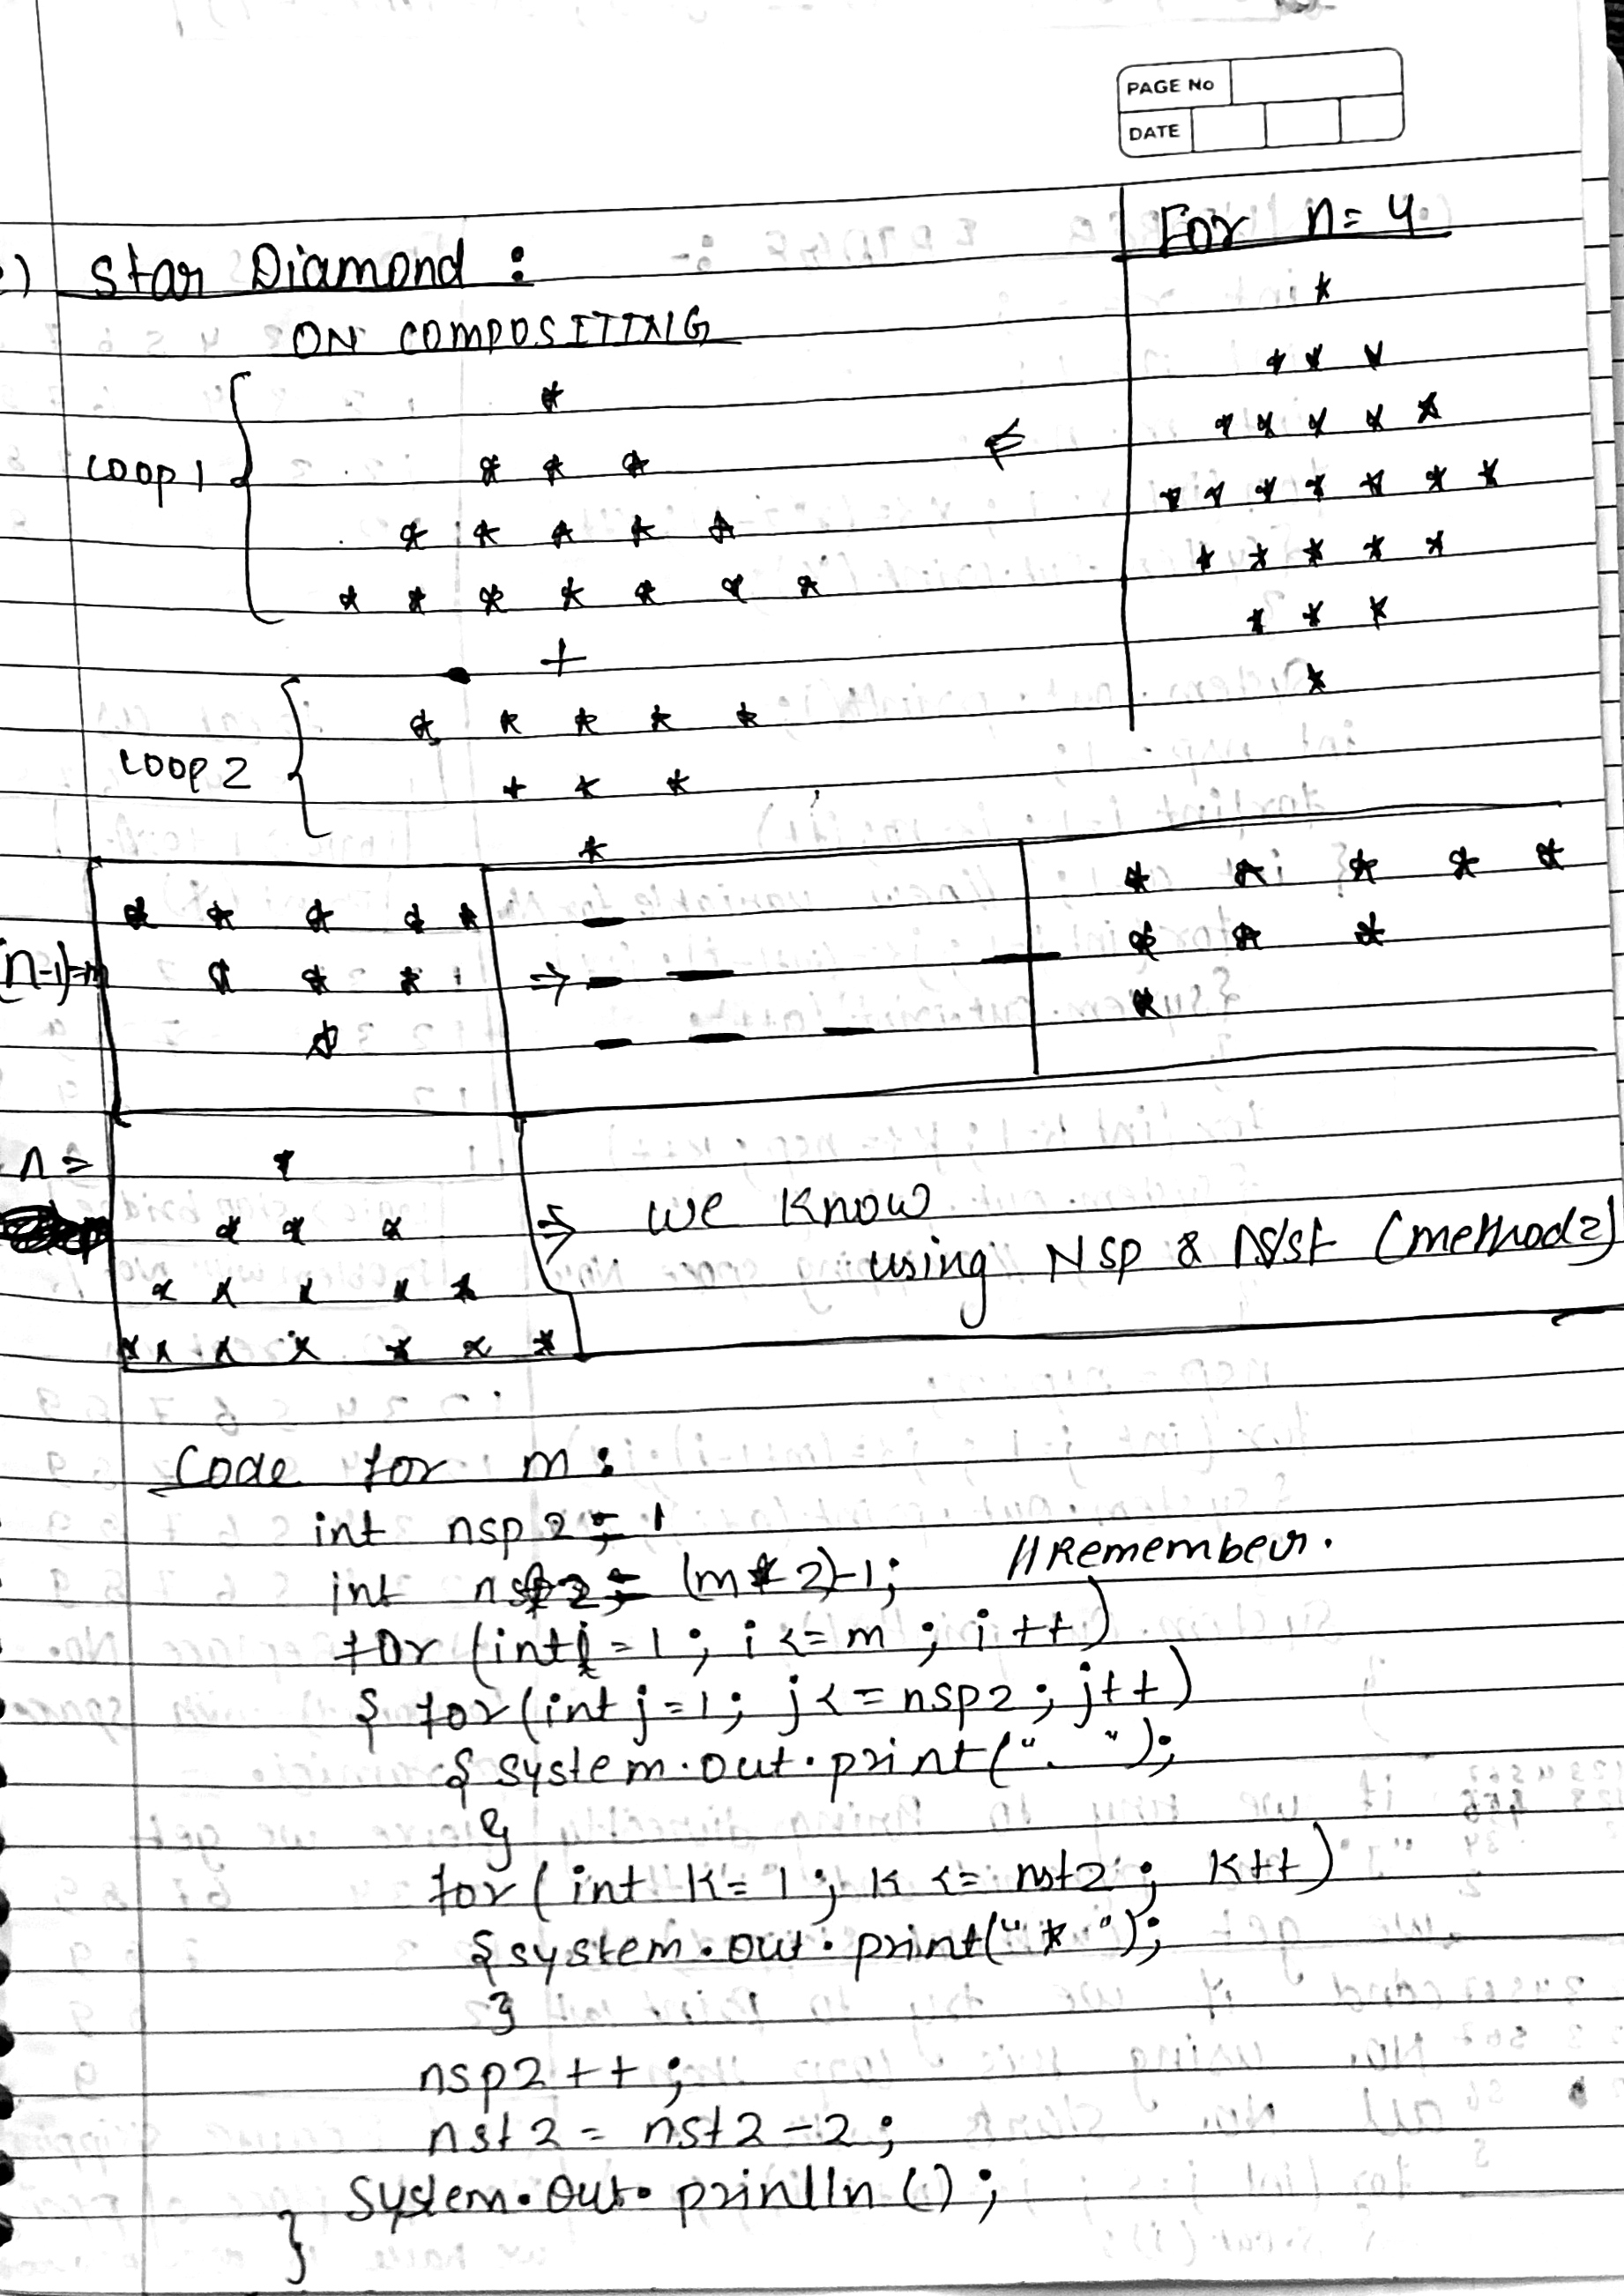 PAGE No
DATE
For n=4
*
* * *
* * * * *
* * * * * * *
* * * * *
* * *
*
) Star Diamond :
ON COMPOSITING
*
LOOP 1
* * *
* * * * *
* * * * * * *
+
* * * * *
LOOP 2
* * *
*
* * * * * - * * * * *
(n-1)=m * * * ⇒ - - - * * *
* - - - *
n = *
* * * ⇒ we know
using Nsp & Nst (method 2)
* * * * *
* * * * * * *
Code for m :
int nsp2 = 1
int nst2 = (m*2)-1; //Remember.
for (int i = 1 ; i <= m ; i ++)
{ for (int j = 1 ; j <= nsp2 ; j++)
{ system.out.print(". ");
}
for ( int k = 1 ; k <= nst2 ; k++)
{ system.out.print("* ");
}
nsp2 ++ ;
nst2 = nst2 - 2 ;
System.out.println () ;
}